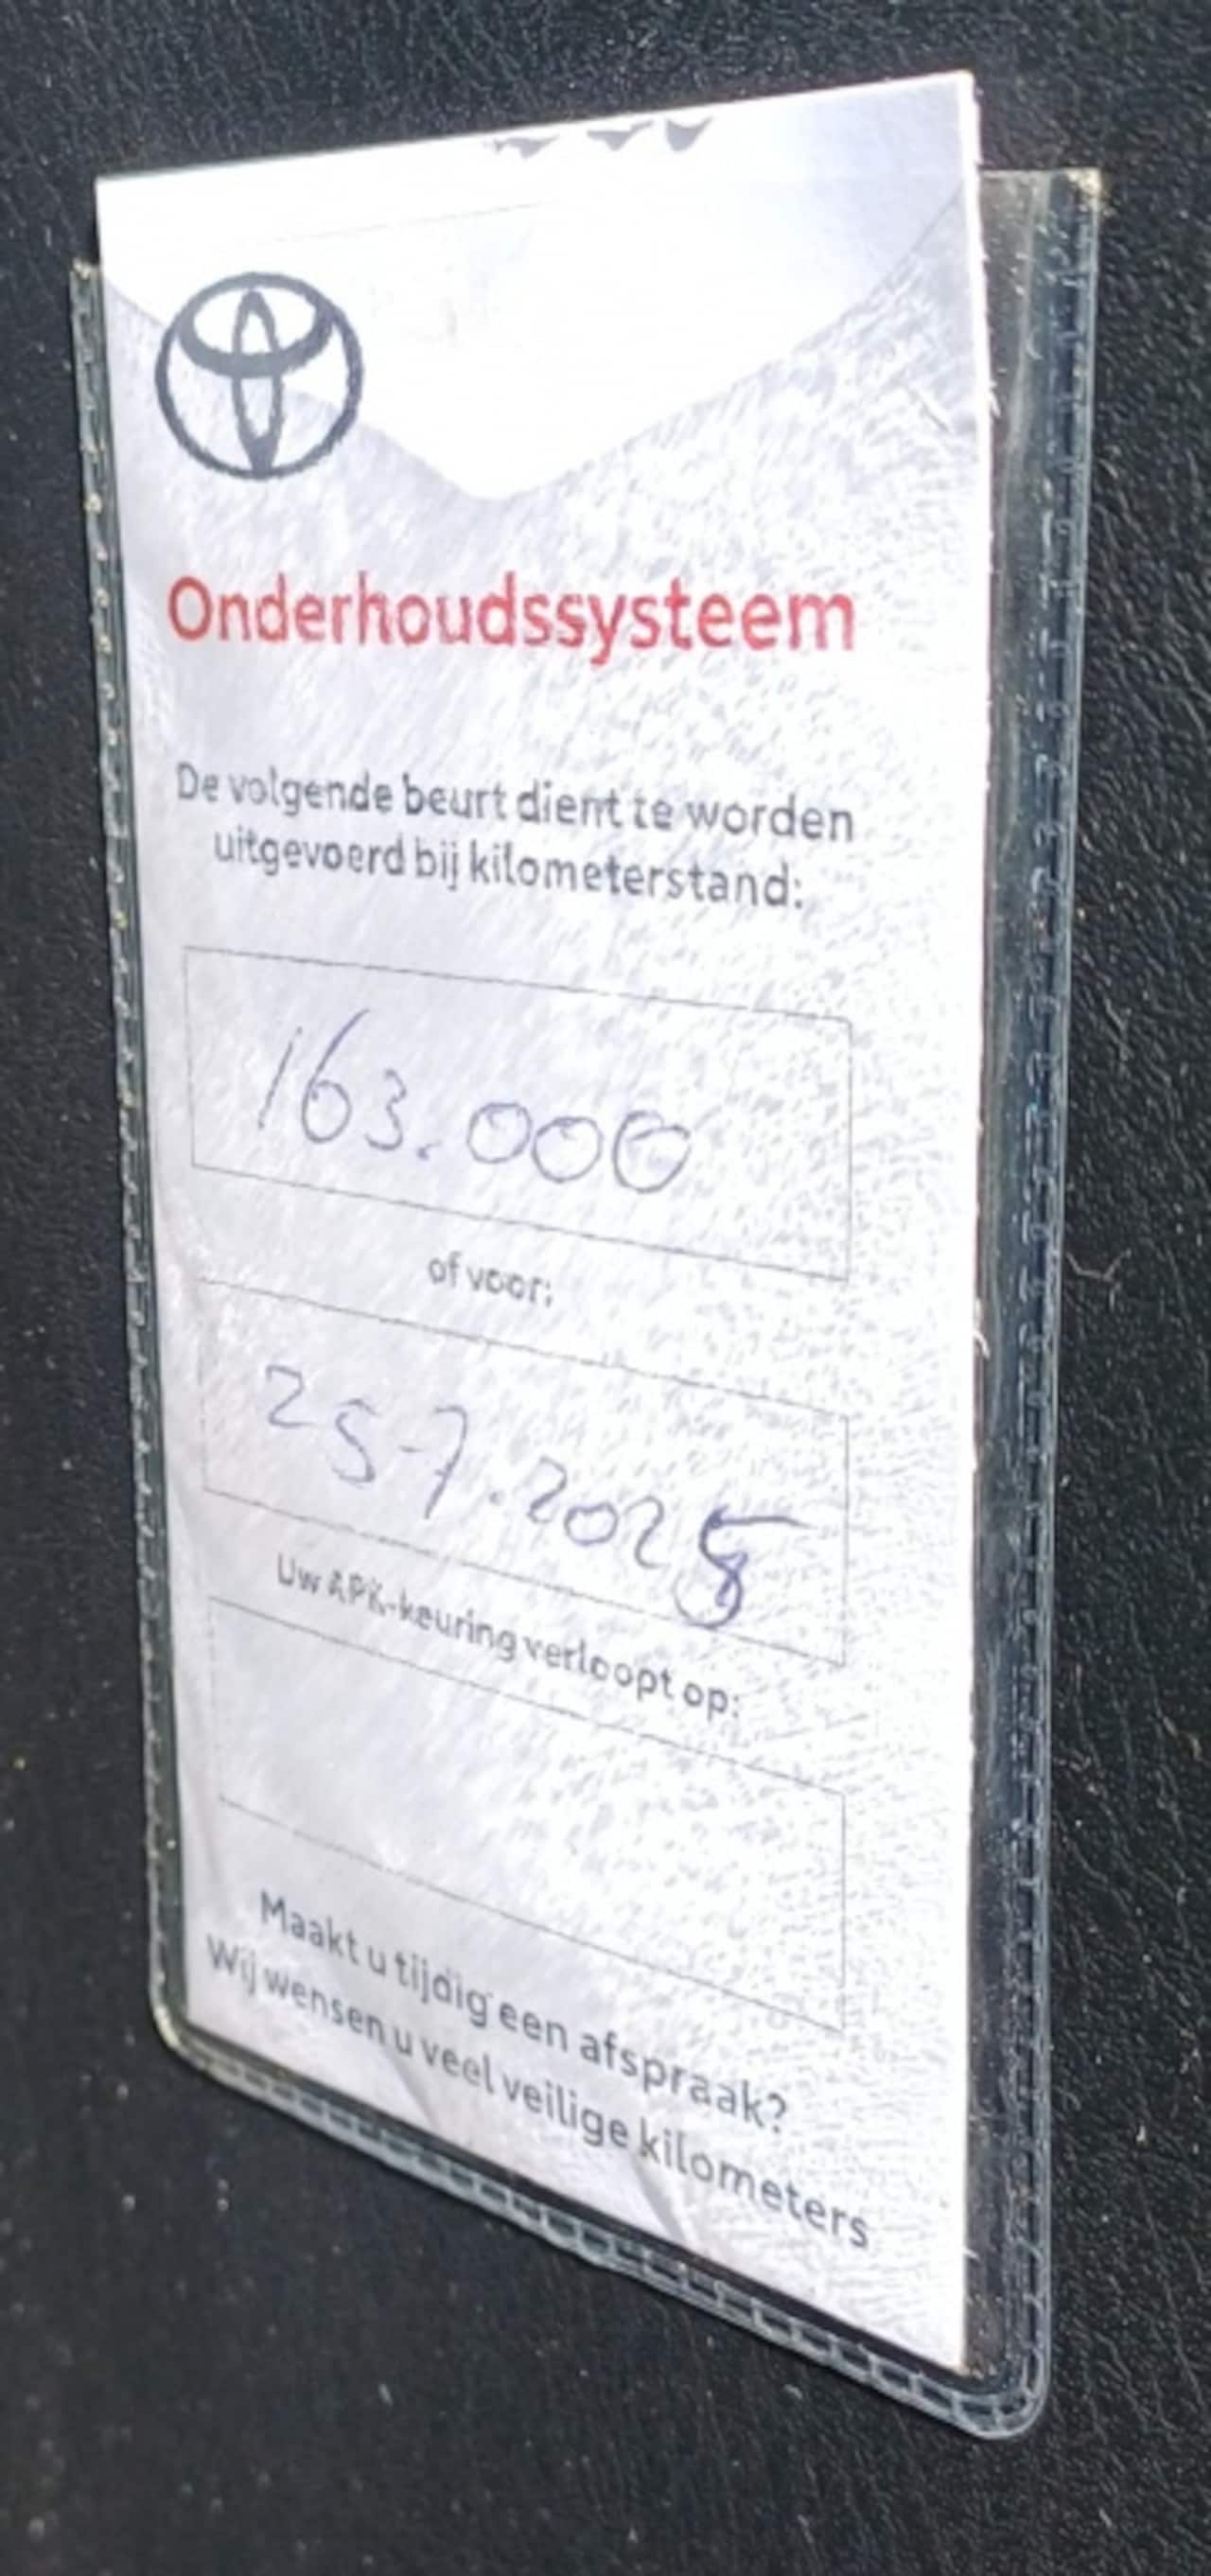 Onderhoudssysteem
De volgende beurt dient te worden
uitgevoerd bij kilometerstand:
163.000
of voor:
25-7.2025
Uw APK-keuring verloopt op:
Maakt u tijdig een afspraak?
Wij wensen u veel veilige kilometers